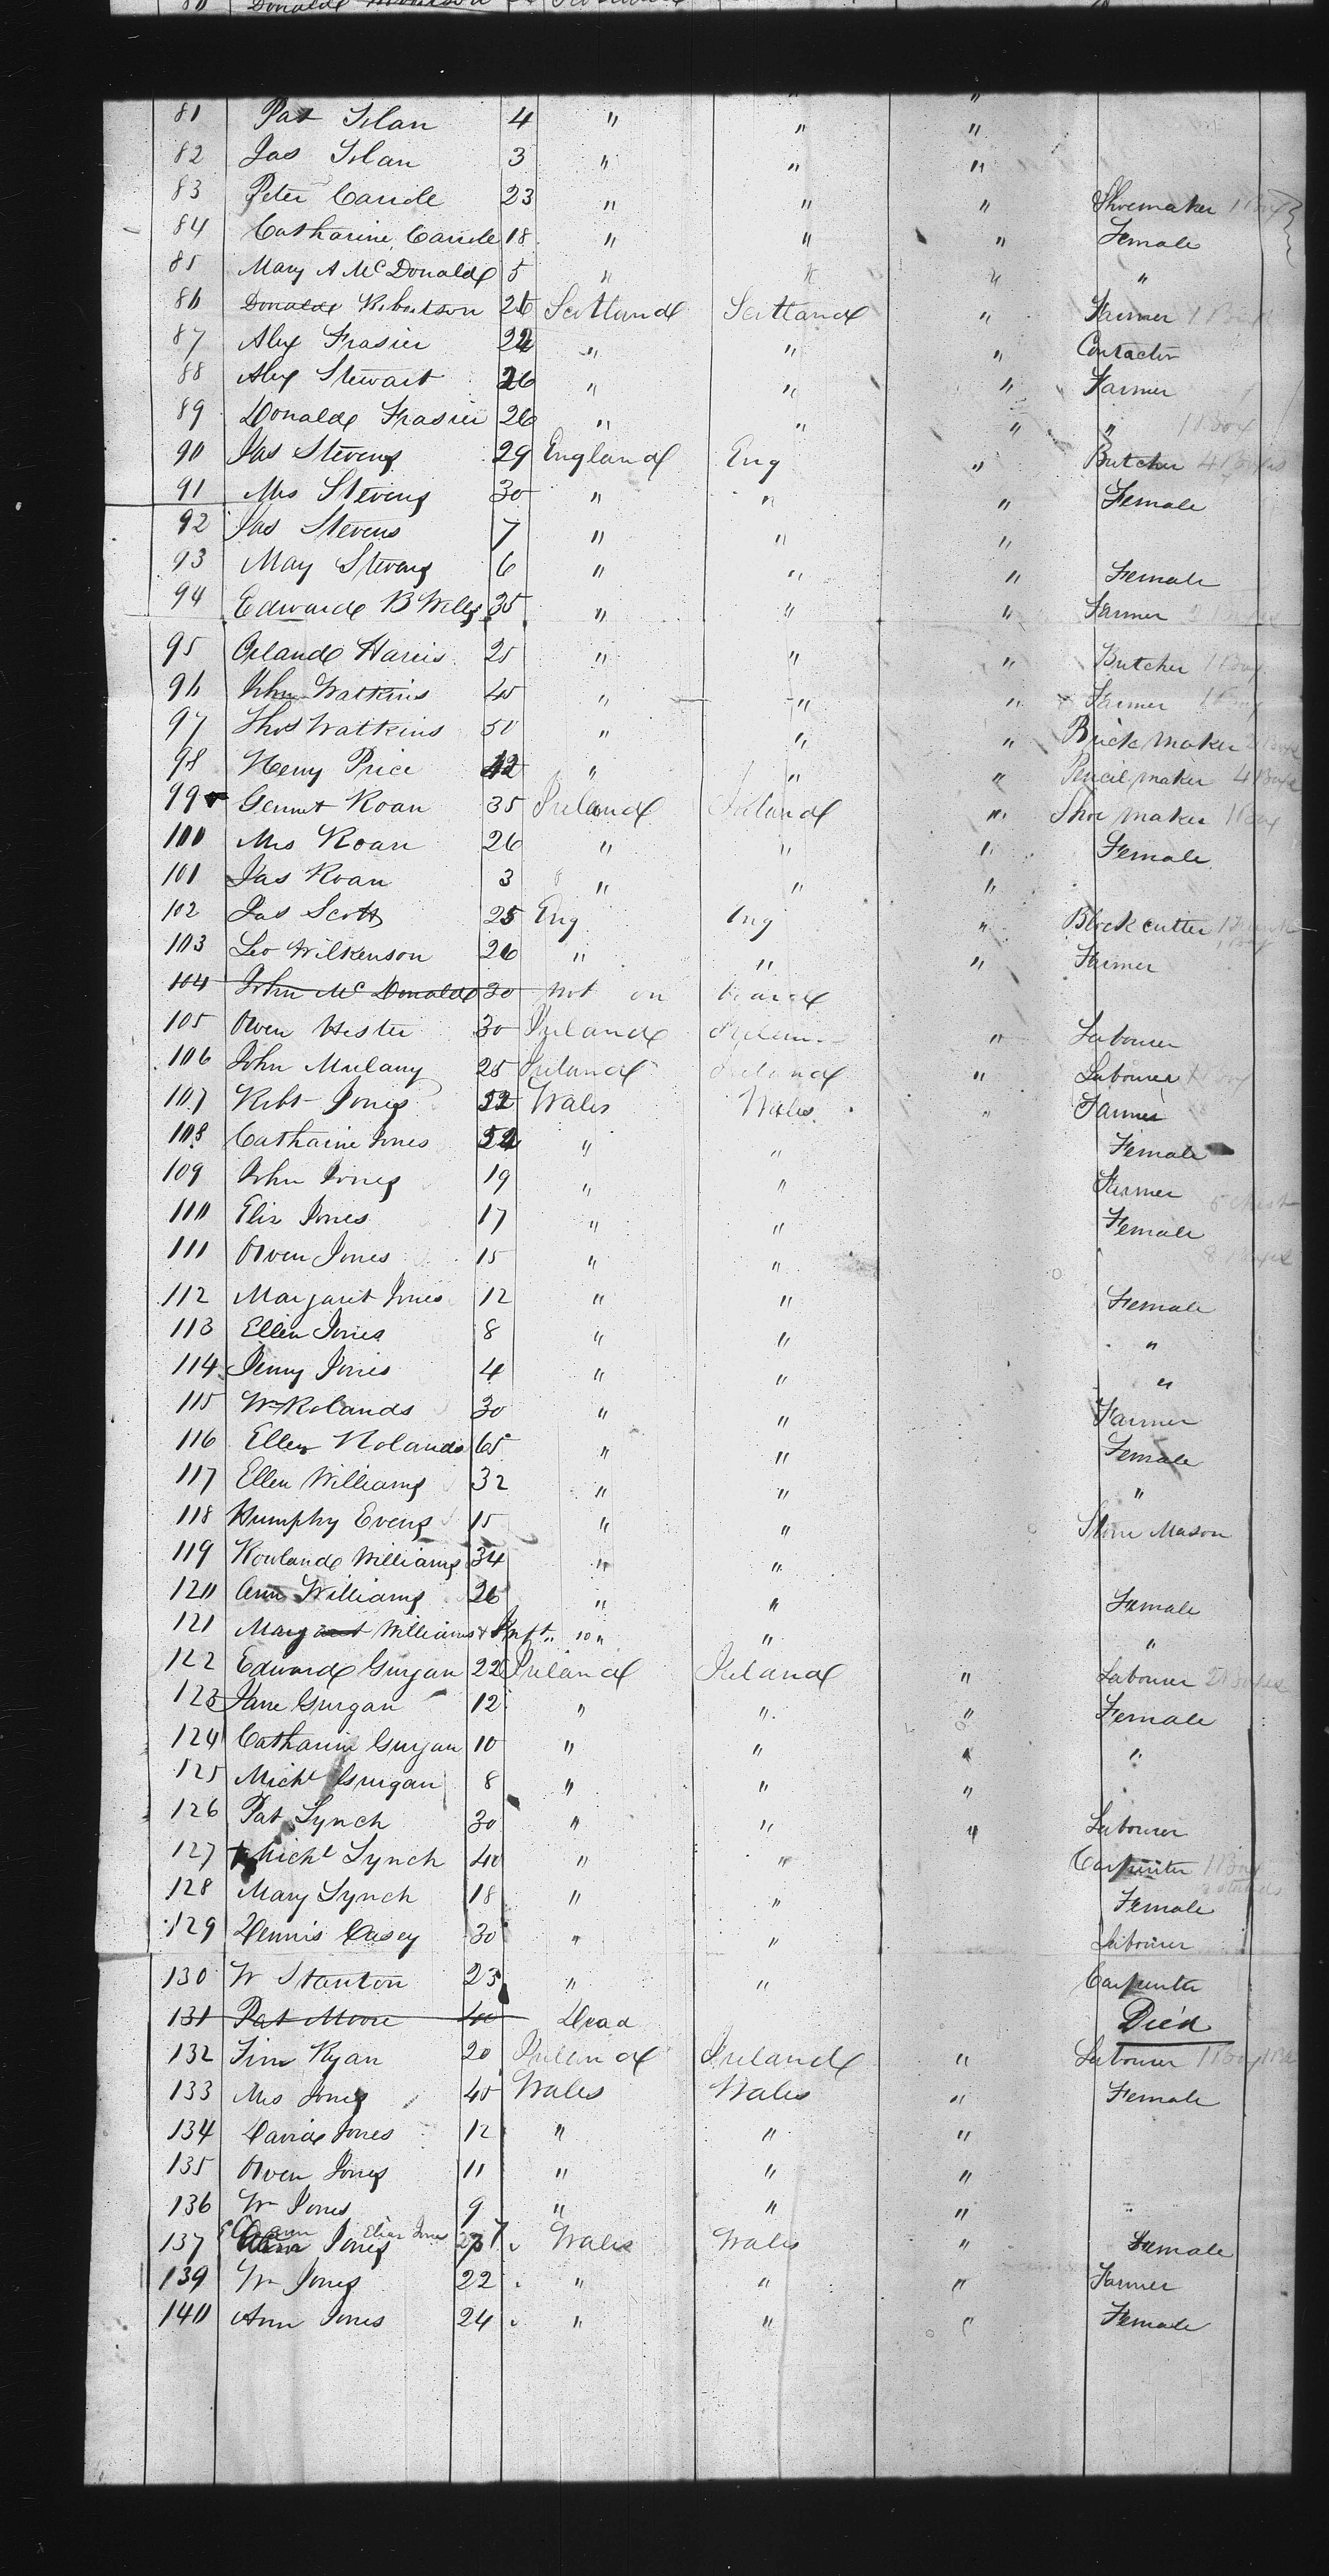 81 Pat Ilan 4 " " "
82 Jas Ilan 3 " " "
83 Peter Caride 23 " " " Shoemaker
84 Catharine Caride 18 " " " Female
85 Mary A McDonald 5 " " " "
86 Donald Robertson 26 Scotland Scotland " Farmer
87 Alex Frasier 22 " " " Contractor
88 Alex Stewart 26 " " " Farmer
89 Donald Frasier 26 " " " " 1 Box
90 Jas Stevens 29 England Eng " Butcher 4 Boxes
91 Mrs Stevens 30 " " " Female
92 Jas Stevens 7 " " "
93 Mary Stevens 6 " " " Female
94 Edward B Wells 35 " " " Farmer
95 Orland Harris 25 " " " Butcher 1 Box
96 John Watkins 45 " " " Farmer 1 Box
97 Thos Watkins 50 " " " Brick Maker
98 Henry Price 42 " " " Pencil maker 4 Boxes
99 Gernut Roan 35 Ireland Ireland " Shoe maker 1 Box
100 Mrs Roan 26 " " " Female
101 Jas Roan 3 " " "
102 Jas Scott 25 Eng Eng " Block cutter 1 Trunk
1 Box
103 Leo Wilkenson 26 " " " Farmer
104 John McDonald 30 not on board
105 Owen Hester 30 Ireland Ireland " Labourer
106 John Mulany 25 Ireland Ireland " Labourer 1 Box
107 Robt Jones 52 Wales Wales " Farmer
108 Catharine Jones 52 " " Female
109 John Jones 19 " " Farmer
5 Chest
110 Eliz Jones 17 " " Female
111 Owen Jones 15 " " 8 Boxes
112 Margaret Jones 12 " " Female
113 Ellen Jones 8 " " "
114 Jenny Jones 4 " " "
115 Wm Rolands 30 " " Farmer
116 Ellen Rolands 65 " " Female
117 Ellen Williams 32 " " "
118 Humphy Evens 15 " " Stone Mason
119 Rowland Williams 34 " "
120 Ann Williams 26 " " Female
121 Margaret Williams + Inft " " "
122 Edward Gurgan 22 Ireland Ireland " Labourer 2 Boxes
123 Jane Gurgan 12 " " " Female
124 Catharine Gurgan 10 " " " "
125 Michl Gurgan 8 " " "
126 Pat Lynch 30 " " " Labourer
127 Michl Lynch 40 " " Carpenter 1 Box
128 Mary Lynch 18 " " Female
129 Dennis Casey 30 " " Labourer
130 W Stanton 23 " " Carpenter
131 Pat Moore 40 Dead Died
132 Tim Ryan 20 Ireland Ireland " Labourer 1 Box
133 Mrs Jones 45 Wales Wales " Female
134 David Jones 12 " " "
135 Owen Jones 11 " " "
136 Wm Jones 9 " " "
Eliza Jones
137 Jones 27 Wales Wales " Female
139 Wm Jones 22 " " " Farmer
140 Ann Jones 24 " " " Female